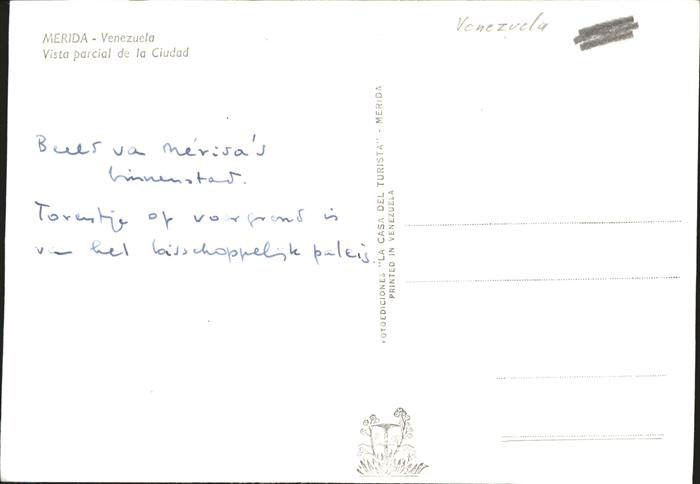 MERIDA - Venezuela
Vista parcial de la Ciudad
Venezuela
Beeld va Mérida's
binnenstad.
Torentje op voorgrond is
van het bisschoppelijk paleis.
FOTOEDICIONES "LA CASA DEL TURISTA" - MERIDA
PRINTED IN VENEZUELA